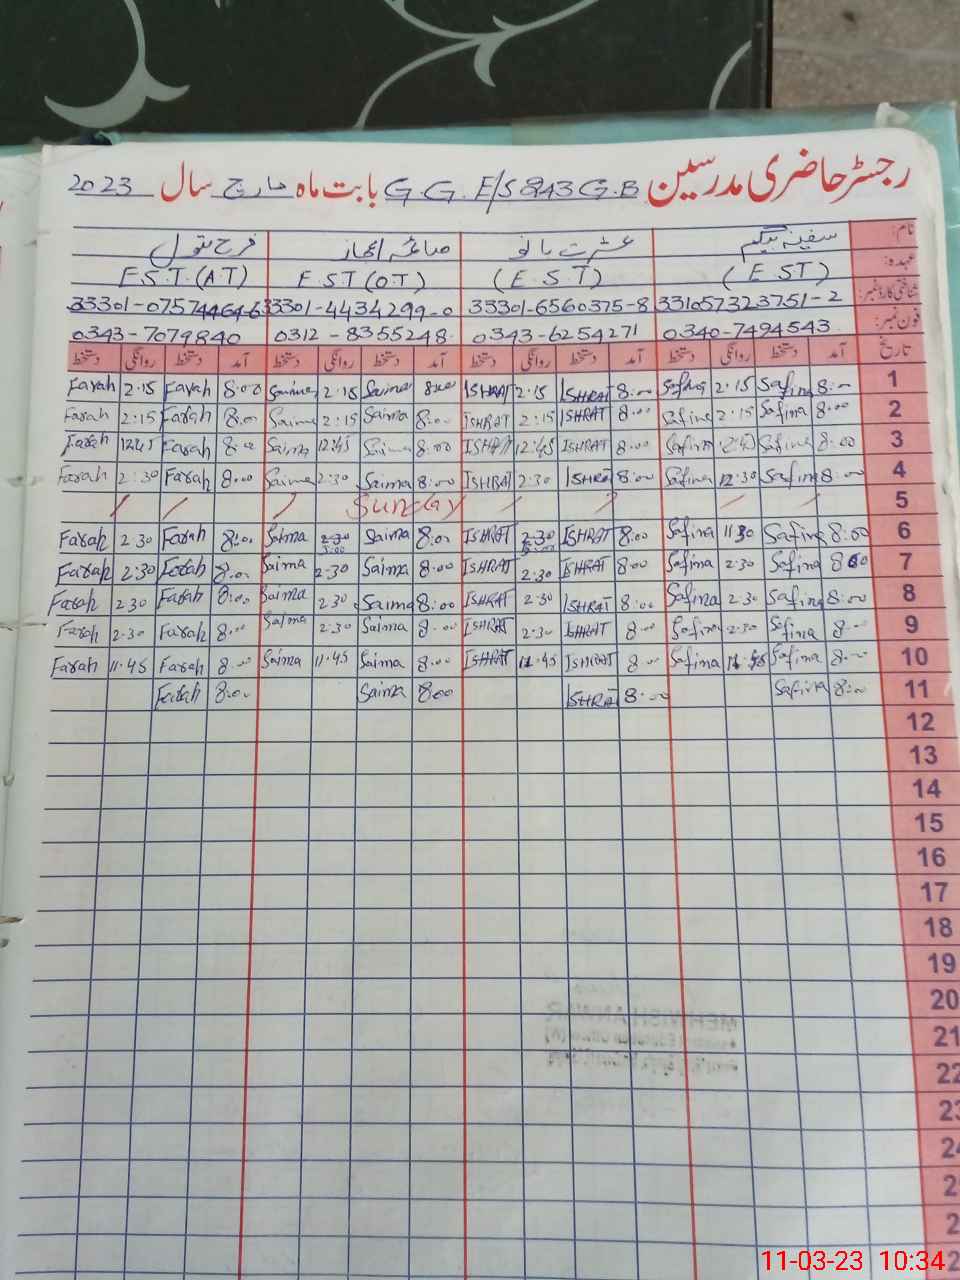 رجسٹر حاضری مدرسین G.G.E/S 843 G.B بابت ماہ مارچ سال 2023
نام: سفینہ بیگم عشرت بانو صائمہ اعجاز فرح بتول
عہدہ: (E.ST) (E.S.T) E.S.T(O.T) E.S.T.(A.T)
شناختی کارڈ نمبر: 331057323751-2 33301-6560375-8 33301-4434299-0 33301-0757446
فون نمبر: 0340-7494543 0343-6254271 0312-8355248 0343-7079840
تاریخ آمد دستخط روانگی دستخط آمد دستخط روانگی دستخط آمد دستخط روانگی دستخط آمد دستخط روانگی دستخط
Farah 2:15 Farah 8:00 Saima 2:15 Saima 8:00 ISHRAT 2:15 ISHRAT 8:00 Safina 2:15 Safina 8:00 1
Farah 2:15 Farah 8:00 Saima 2:15 Saima 8:00 ISHRAT 2:15 ISHRAT 8:00 Safina 2:15 Safina 8:00 2
Farah 12:45 Farah 8:00 Saima 12:45 Saima 8:00 ISHRAT 12:45 ISHRAT 8:00 Safina Safina 8:00 3
Farah 2:30 Farah 8:00 Saima 2:30 Saima 8:00 ISHRAT 2:30 ISHRAT 8:00 Safina 12:30 Safina 8:00 4
Sunday 5
Farah 2:30 Farah 8:00 Saima 2:30 Saima 8:00 ISHRAT 2:30 ISHRAT 8:00 Safina 11:30 Safina 8:00 6
Farah 2:30 Farah 8:00 Saima 2:30 Saima 8:00 ISHRAT 2:30 ISHRAT 8:00 Safina 2:30 Safina 8:00 7
Farah 2:30 Farah 8:00 Saima 2:30 Saima 8:00 ISHRAT 2:30 ISHRAT 8:00 Safina 2:30 Safina 8:00 8
Farah 2:30 Farah 8:00 Saima 2:30 Saima 8:00 ISHRAT 2:30 ISHRAT 8:00 Safina 2:30 Safina 8:00 9
Farah 11:45 Farah 8:00 Saima 11:45 Saima 8:00 ISHRAT 11:45 ISHRAT 8:00 Safina 11:45 Safina 8:00 10
Farah 8:00 Saima 8:00 ISHRAT 8:00 Safina 8:00 11
12
13
14
15
16
17
18
19
20
21
22
23
24
11-03-23 10:34